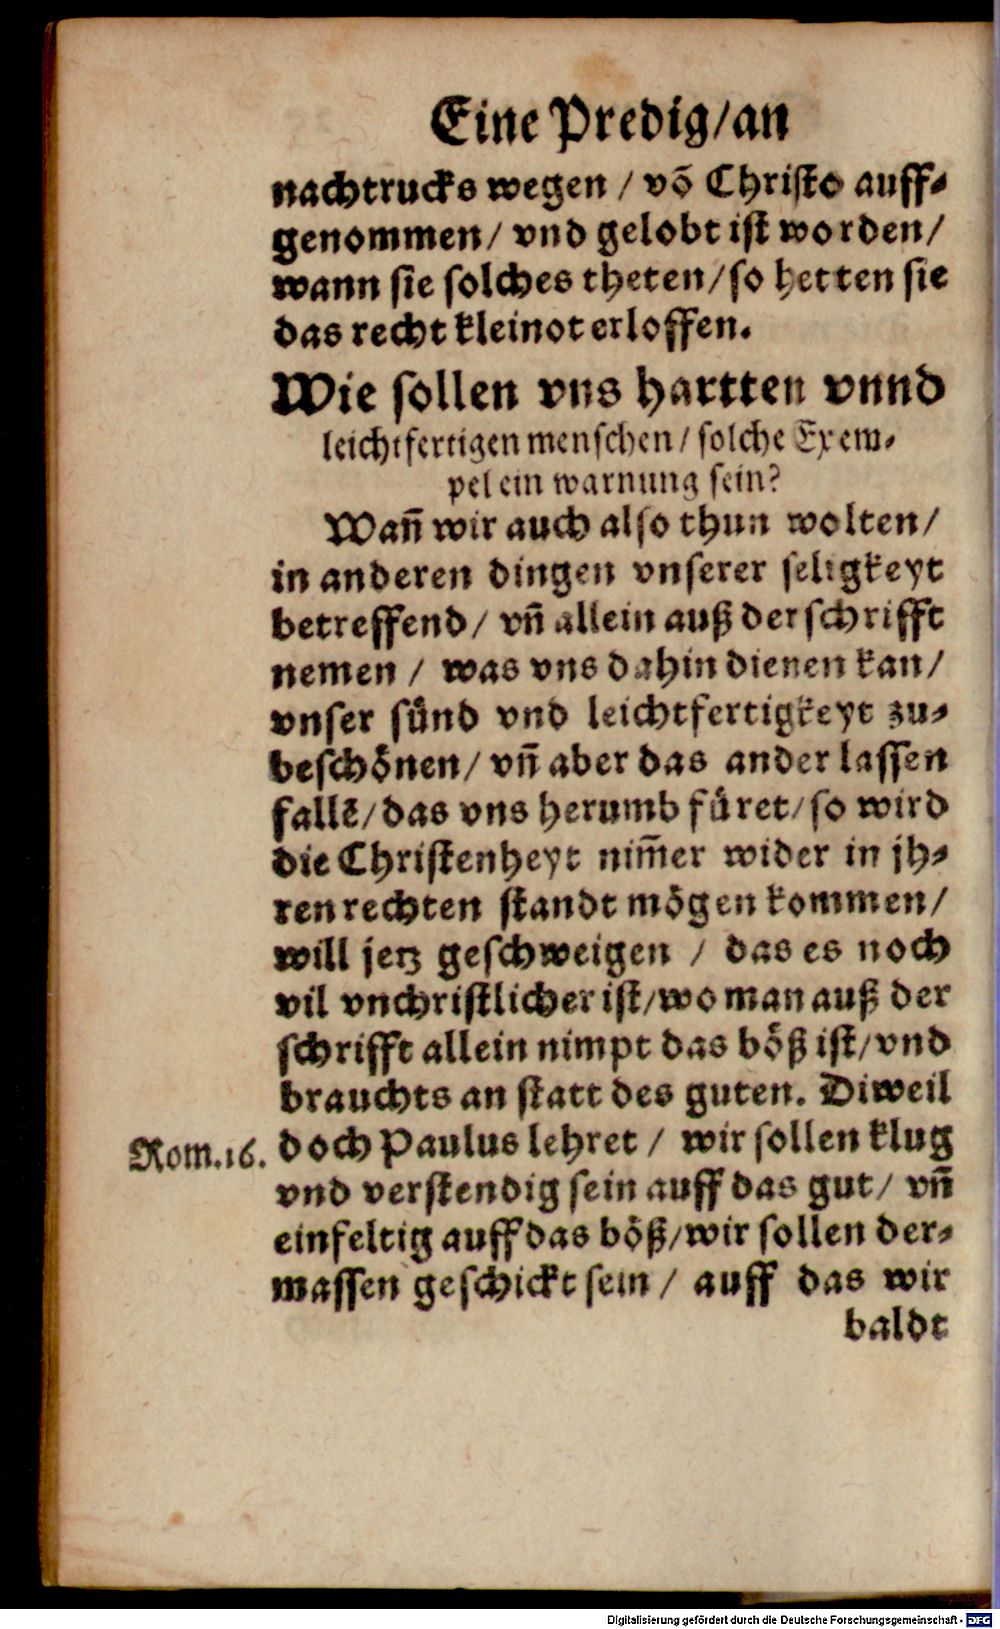 Eine Predig/an
nachtrucks wegen / võ Christo auff⸗
genommen/ vnd gelobt ist worden/
wann sie solches theten/so hetten sie
das recht kleinot erloffen.
Wie sollen vns hartten vnnd
leichtfertigen menschen/ solche Exem⸗
pel ein warnung sein?
Wañ wir auch also thun wolten/
in anderen dingen vnserer seligkeyt
betreffend/ vñ allein auß der schrifft
nemen / was vns dahin dienen kan/
vnser sünd vnd leichtfertigkeyt zu⸗
beschönen/ vñ aber das ander lassen
fallẽ/das vns herumb füret/so wird
die Christenheyt nim̃er wider in jh⸗
ren rechten standt mögen kommen/
will jetz geschweigen / das es noch
vil vnchristlicher ist/wo man auß der
schrifft allein nimpt das böß ist/vnd
brauchts an statt des guten. Diweil
Rom.16. doch Paulus lehret / wir sollen klug
vnd verstendig sein auff das gut/ vñ
einfeltig auff das böß/wir sollen der⸗
massen geschickt sein / auff das wir
baldt
Digitalisierung gefördert durch die Deutsche Forschungsgemeinschaft - DFG